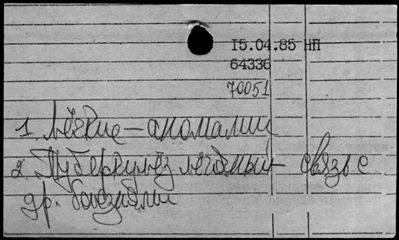 15.04.85 НП
64336
70051
1. Лёгкие – аномалии
2. Туберкулёз легочный – связь с
др. болезнями